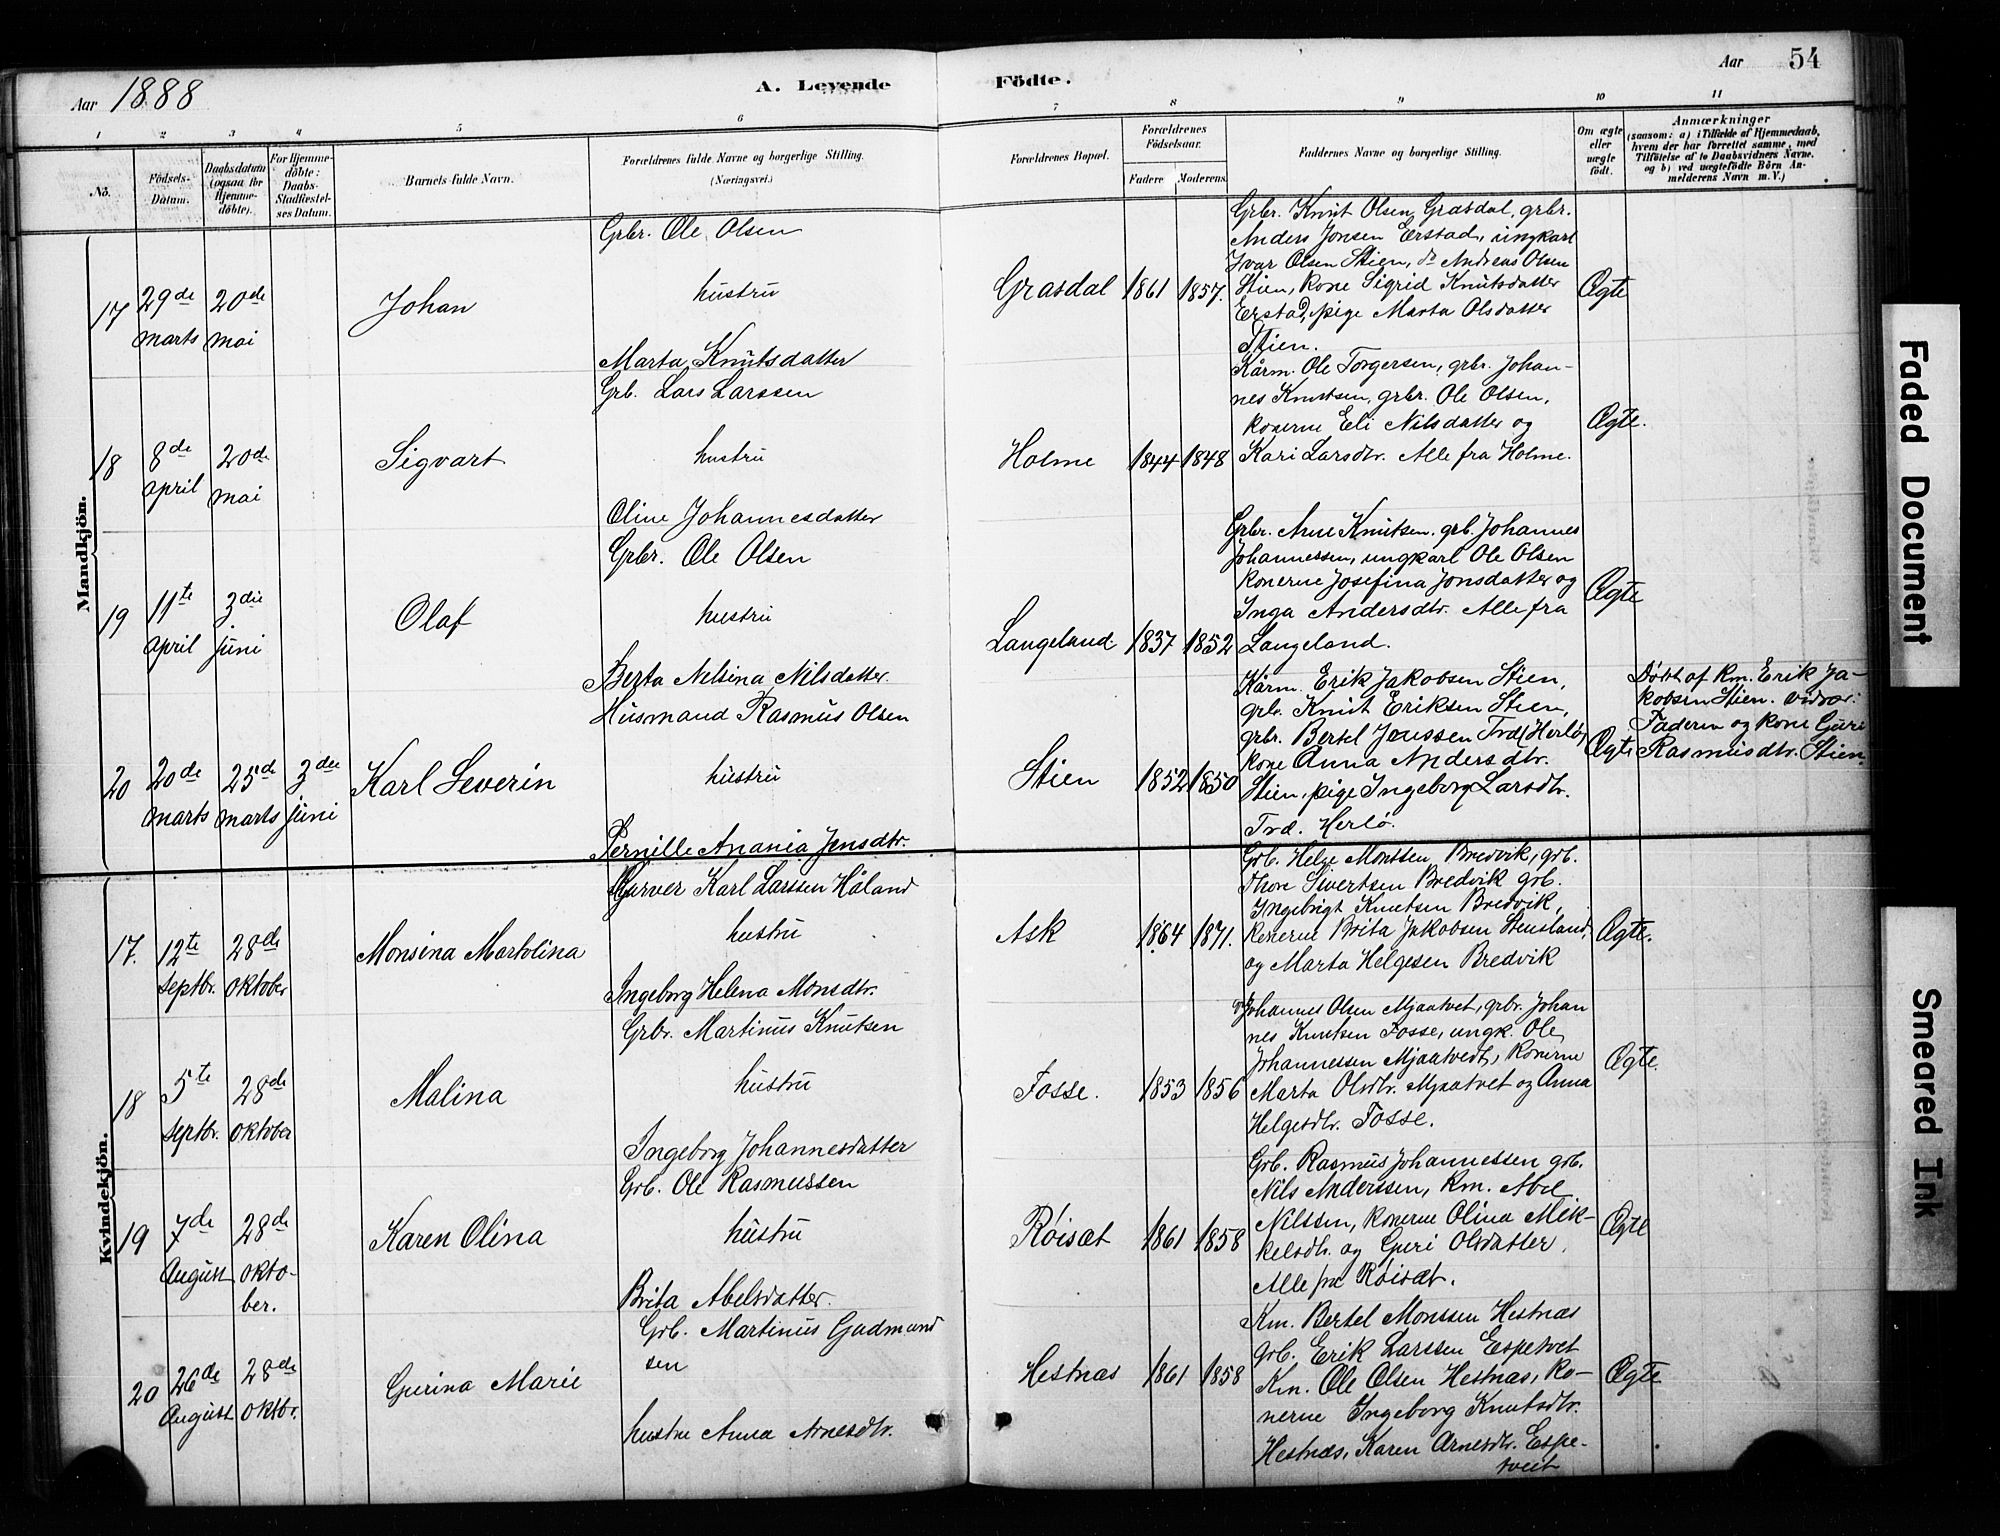 Aar 1888
A. Levende
Födte.
Aar
54
1 2 3 4 5 6 7 8 9 10 11
No.
Födsels-
Datum.
Daabsdatum
(ogsaa for
Hjemme-
döbte).
For Hjemme-
döbte:
Daabs-
Stadfæstel-
ses Datum.
Barnets fulde Navn.
Forældrenes fulde Navne og borgerlige Stilling.
(Næringsvei.)
Forældrenes Bopæl.
Forældrenes
Födselsaar.
Faders
Moderens
Faddernes Navne og borgerlige Stilling.
Om ægte
eller
uægte
födt.
Anmærkninger
(saasom: a) i Tilfælde af Hjemmedaab,
hvem der har forrettet samme, med
Tilföielse af to Daabsvidners Navne,
og b) ved uægtefödte Börn An-
melderens Navn m. V.)
Mandkjön.
17
29de
marts
20de
mai
Johan
Grbr. Ole Olsen
hustru
Marta Knutsdatter
Grasdal
1861
1857.
Grbr. Knut Olsen Grasdal, grbr.
Anders Jonsen Erstad, ungkarl
Ivar Olsen Stien, do Andreas Olsen
Stien, kone Sigrid Knutsdatter
Erstad, pige Marta Olsdatter
Stien.
Ægte
18
8de
april
20de
mai
Sigvart
Grb. Lars Larssen
hustru
Oline Johannesdatter
Holme
1844
1848
Kårm. Ole Torgersen, grbr. Johan-
nes Knutsen, grbr. Ole Olsen,
konerne Eli Nilsdatter og
Kari Larsdtr. Alle fra Holme.
Ægte.
19
11te
april
3die
juni
Olaf
Grbr. Ole Olsen
hustru
Berta Nelsina Nilsdatter
Langeland
1837
1852
Grbr. Arne Knutsen. grb. Johannes
Johannessen, ungkarl Ole Olsen
konerne Josefina Jonsdatter og
Inga Andersdtr. Alle fra
Langeland.
Ægte
20
20de
marts
25de
marts
3die
juni
Karl Severin
Husmand Rasmus Olsen
hustru
Pernille Anania Jensdtr.
Stien
1852
1850
Kårm. Erik Jakobsen Stien,
grbr. Knut Eriksen Stien,
grbr. Bertel Jenssen Tvd. Herlø,
kone Anna Andersdtr.
Stien, pige Ingeborg Larsdtr.
Tvd. Herlö.
Ægte
Døbt af km. Erik Ja-
kobsen Stien. vidner:
Faderen og kone Guri
Rasmusdtr. Stien.
Kvindekjön.
17.
12te
Septbr.
28de
oktober
Monsina Martolina
Garver Karl Larssen Håland
hustru
Ingeborg Helena Monsdtr.
Ask
1864
1871.
Grb. Helge Monssen Bredvik, grb.
Thore Sivertsen Bredvik grb.
Ingebrigt Knutsen Bredvik,
konerne Brita Jakobsen Stensland,
og Marta Helgesen Bredvik
Ægte.
18
5te
Septbr.
28de
oktober
Malina
Grbr. Martinus Knutsen
hustru
Ingeborg Johannesdatter
Fosse.
1853
1856
grb. Johannes Olsen Mjaatvet, grbr. Johan
nes Knutsen Fosse, ungk. Ole
Johannessen Mjaatvedt, konerne
Marta Olsdtr. Mjaatvet og Anna
Helgesdtr. Fosse.
Ægte.
19
7de
August
28de
okto-
ber.
Karen Olina
Grb. Ole Rasmussen
hustru
Brita Abelsdatter
Röisæt
1861
1858
Grb. Rasmus Johannessen grb.
Nils Anderssen, km. Abel
Nilssen, konerne Olina Mik-
kelsdtr. og Guri Olsdatter.
Alle fra Röisæt.
Ægte
20
26de
August
28de
oktbr.
Gurina Marie
Grb. Martinus Gudmund
sen
hustru Anna Arnesdtr.
Hestnæs
1861
1858
Km. Bertel Monssen Hestnæs
grb. Erik Larssen Espetvet
Km. Ole Olsen Hestnæs, ko-
nerne Ingeborg Knutsdtr.
Hestnæs, Karen Arnesdtr. Espe-
tveit
Ægte
Faded Document
Smeared Ink